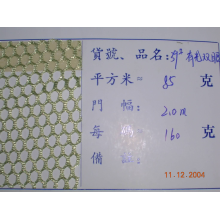 貨號、品名:
平方米= 85 克
門 幅: 2.0 m
每 160 克
備
11.12.2004